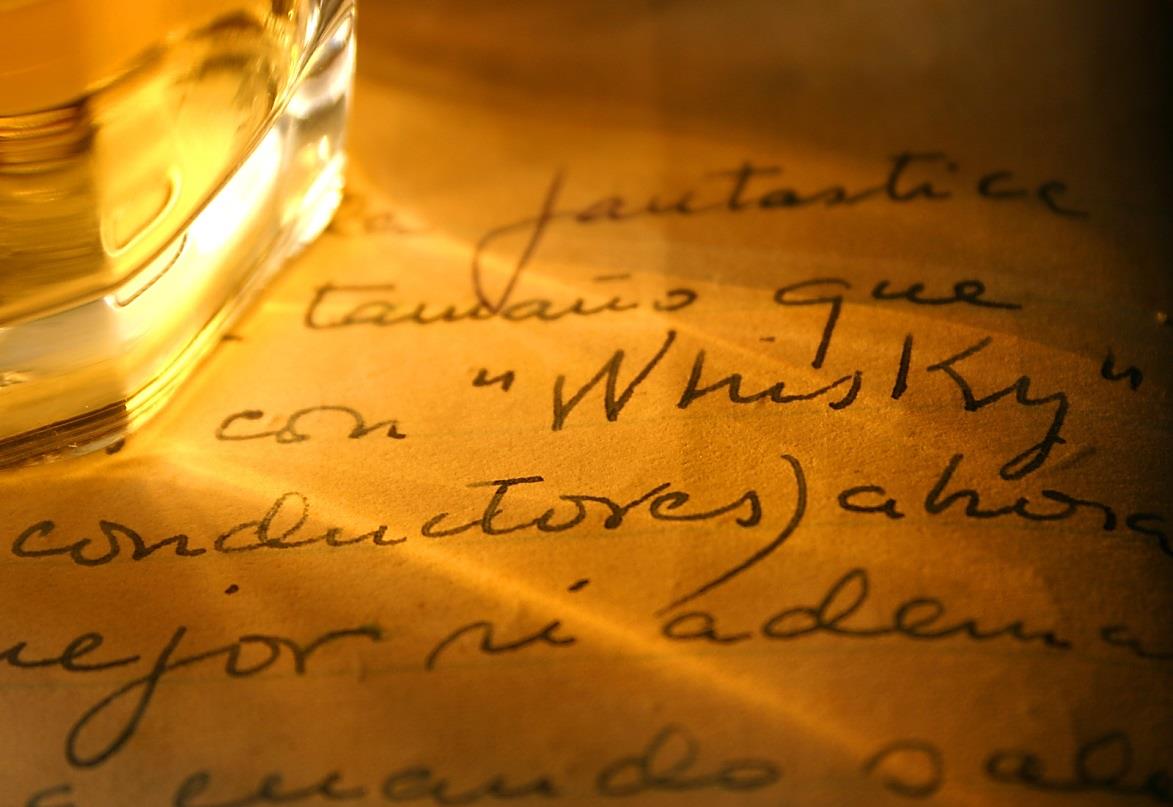 fantastica
tamaño que
con "Whisky"
conductores) ahora
mejor si adema
cuando sale